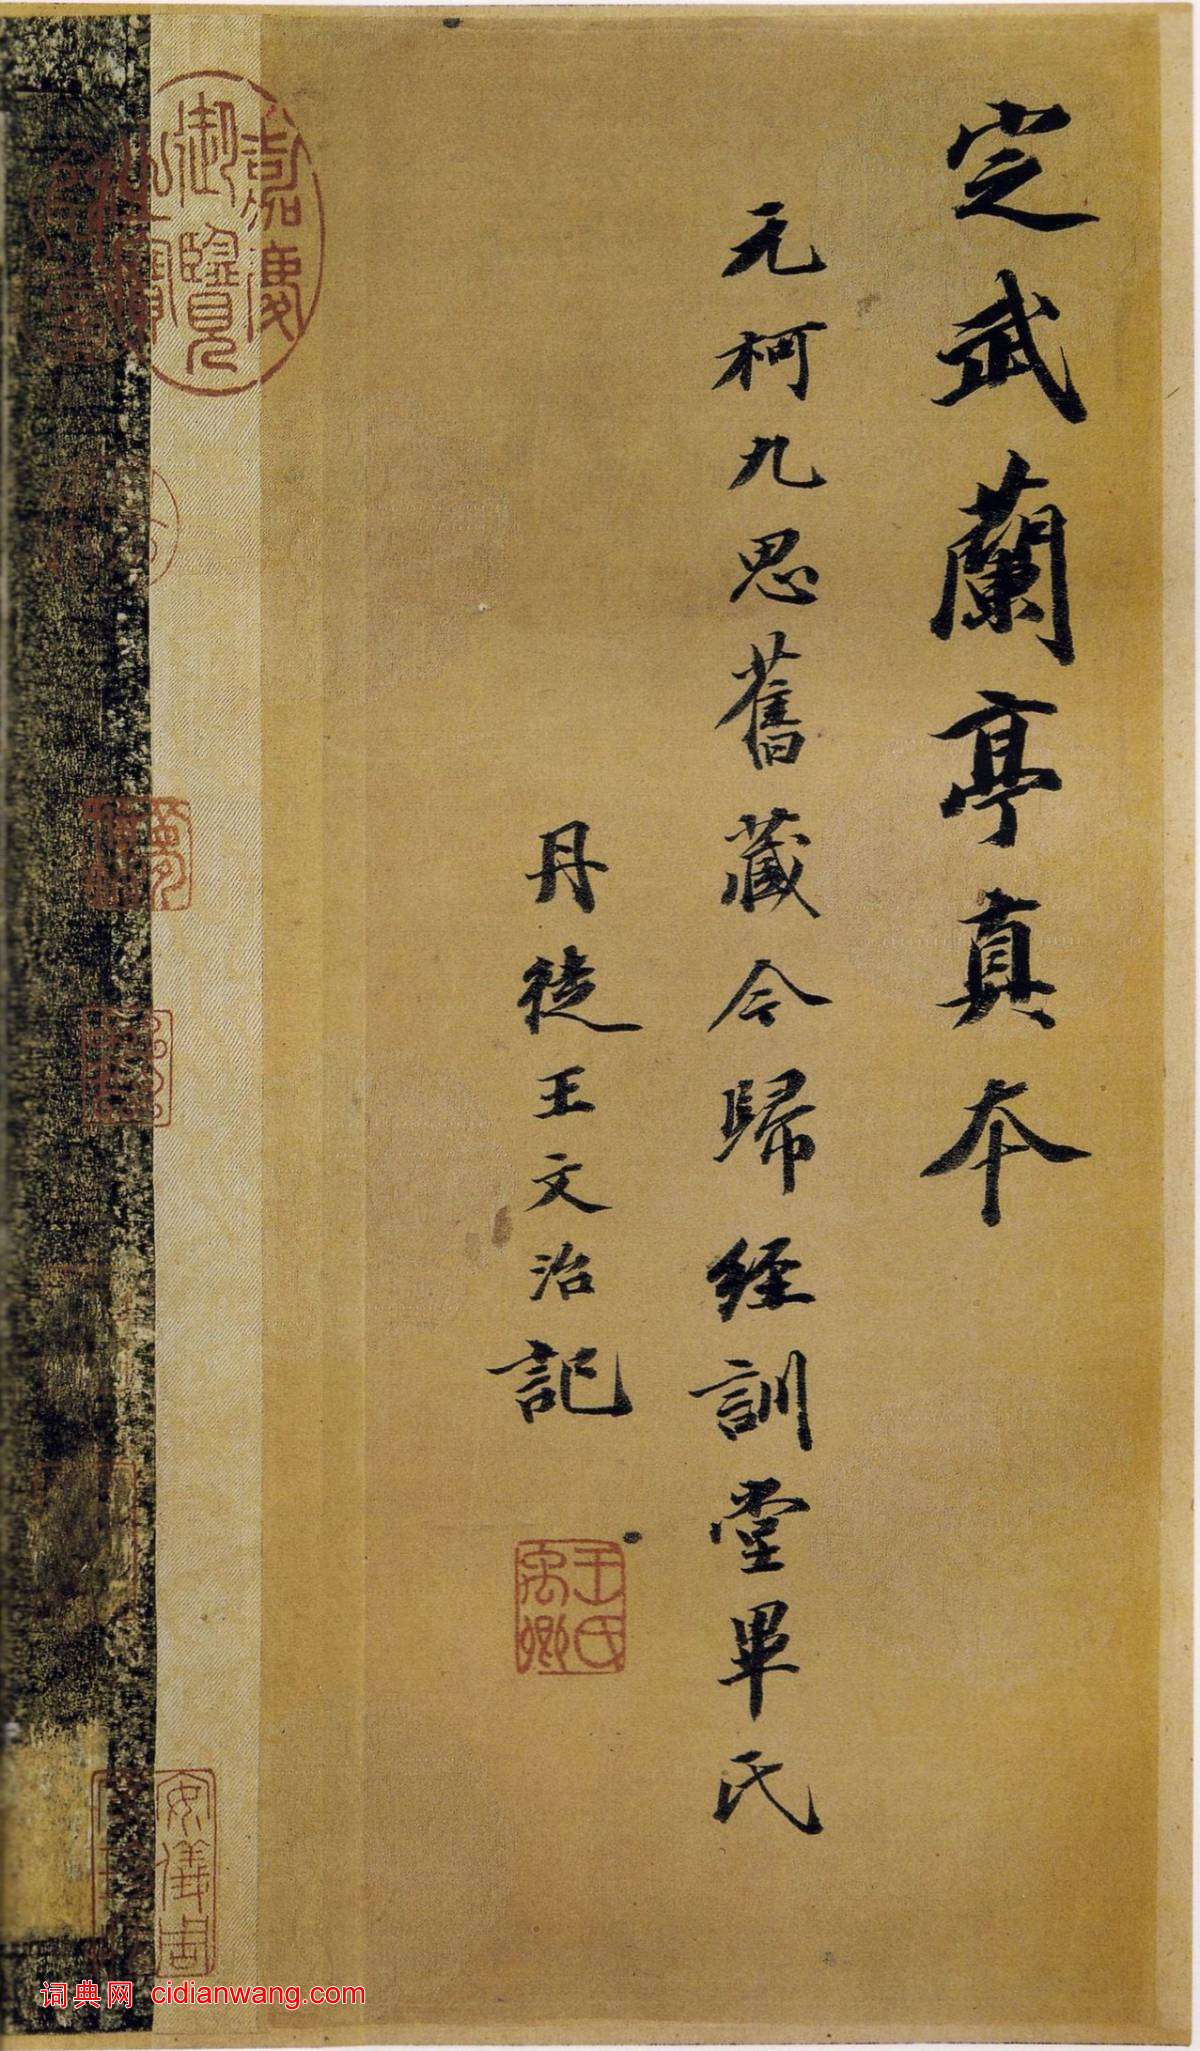 定武蘭亭真本
元柯九思舊藏今歸經訓堂畢氏
丹徒王文治記
王氏禹卿
嘉慶御覽之寶
安儀周
词典网 cidianwang.com